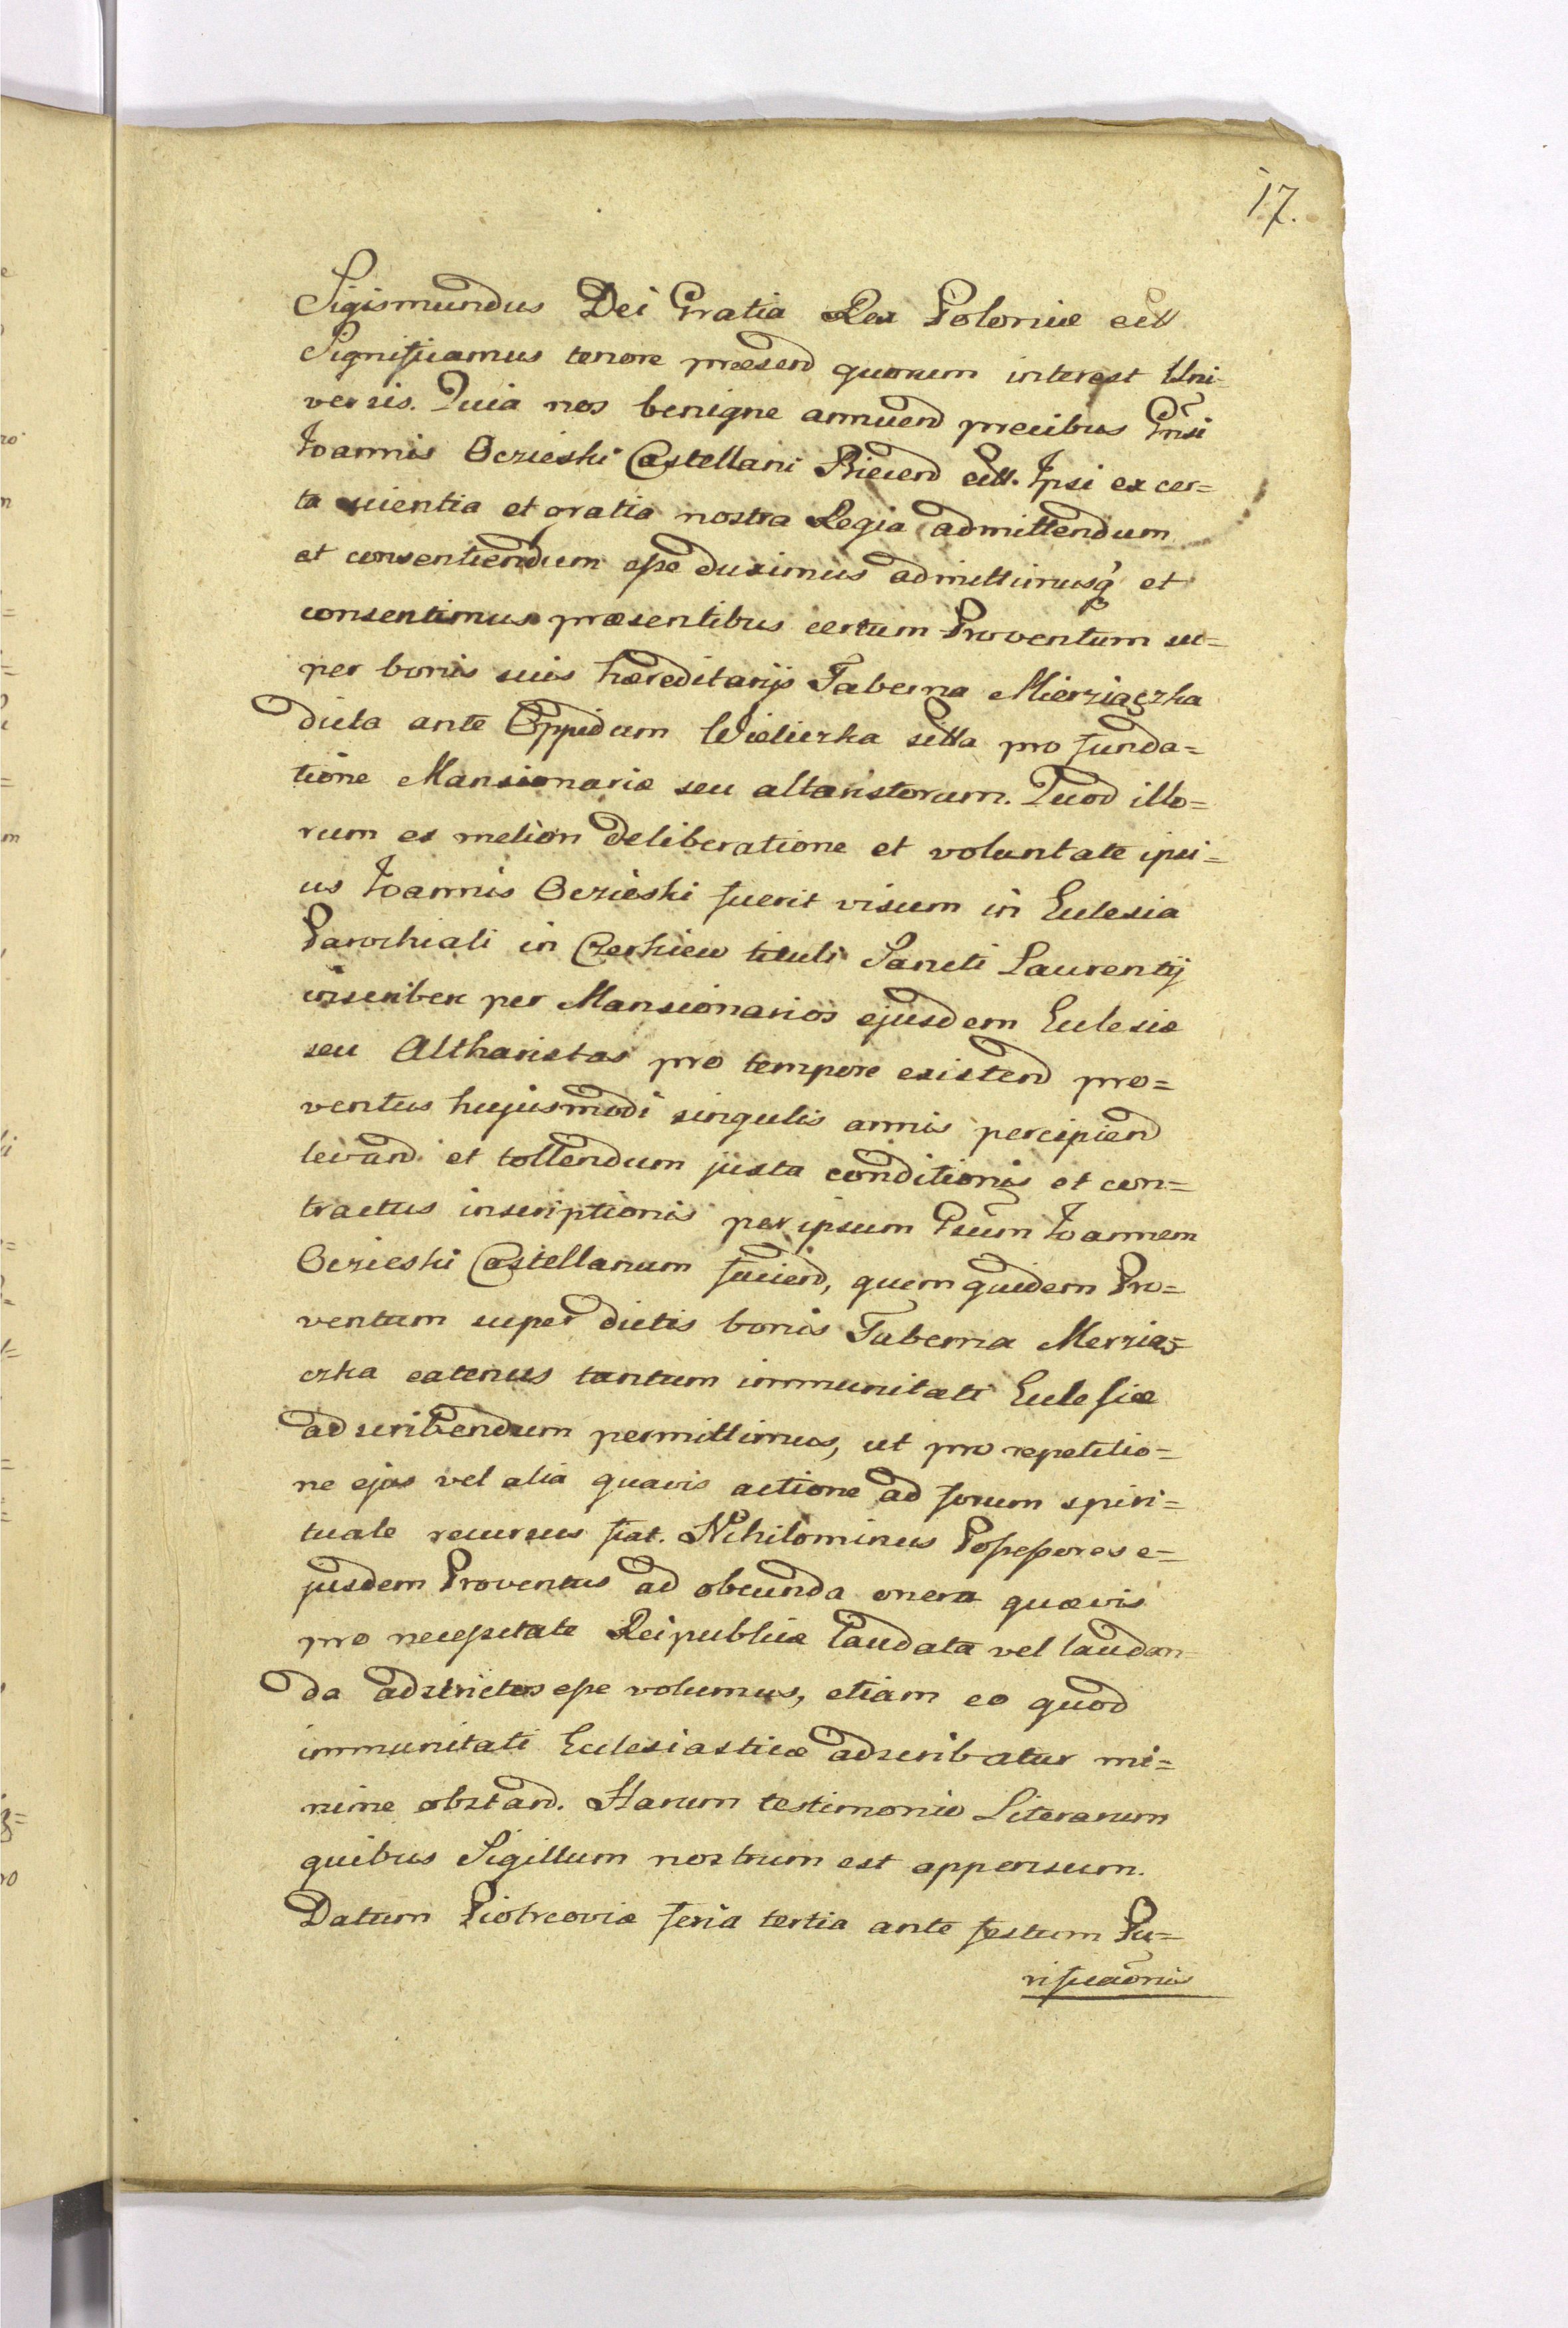 17.
Sigismundus Dei Gratia Rex Poloniæ ett
Significamus tenore præsend quorum interest Uni-
versis. Quia nos benigne annuend precibus Gnsi
Joannis Oczieski Castellani Biecend ett. Ipsi ex cer=
ta scientia et gratia nostra Regia admittendum
et consentiendum esse duximus admittimusq et
consentimus præsentibus certum Proventum su=
per bonis suis hæreditarijs Taberna Mierziączka
dicta ante Oppidum Wieliczka sitta pro funda=
tione Mansionariæ seu altaristorum. Quod illo=
rum ex meliori deliberatione et voluntate ipsi=
us Joannis Oczieski fuerit visum in Eclesia
Parochiali in Czerkiew tituli Sancti Laurentij
inscribere per Mansionarios ejusdem Eclesiæ
seu Altharistas pro tempore existend pro=
ventus hujusmodi singulis annis percipiend
levand et tollendum juxta conditionis et con=
tractus inscriptionis per ipsum Gsum Joannem
Oczieski Castellanum faciend, quem quidem Pro=
ventum super dictis bonis Taberna Merzią=
czka eatenus tantum immunitati Eclesiæ
adscribendum permittimus, ut pro repetitio=
ne ejus vel alia quavis actione ad forum spiri=
tuale recursus fiat. Nihilominus Possessores e=
jusdem Proventus ad obeunda onera quævis
pro necessitate Reipublicæ laudata vel laudan=
da adstrictos esse volumus, etiam eo quod
immunitati Eclesiasticæ adscribatur mi=
nime obstand. Harum testimonio Literarum
quibus Sigillum nostrum est appensum.
Datum Piotrcoviæ feria tertia ante festum Pu=
rificaonis